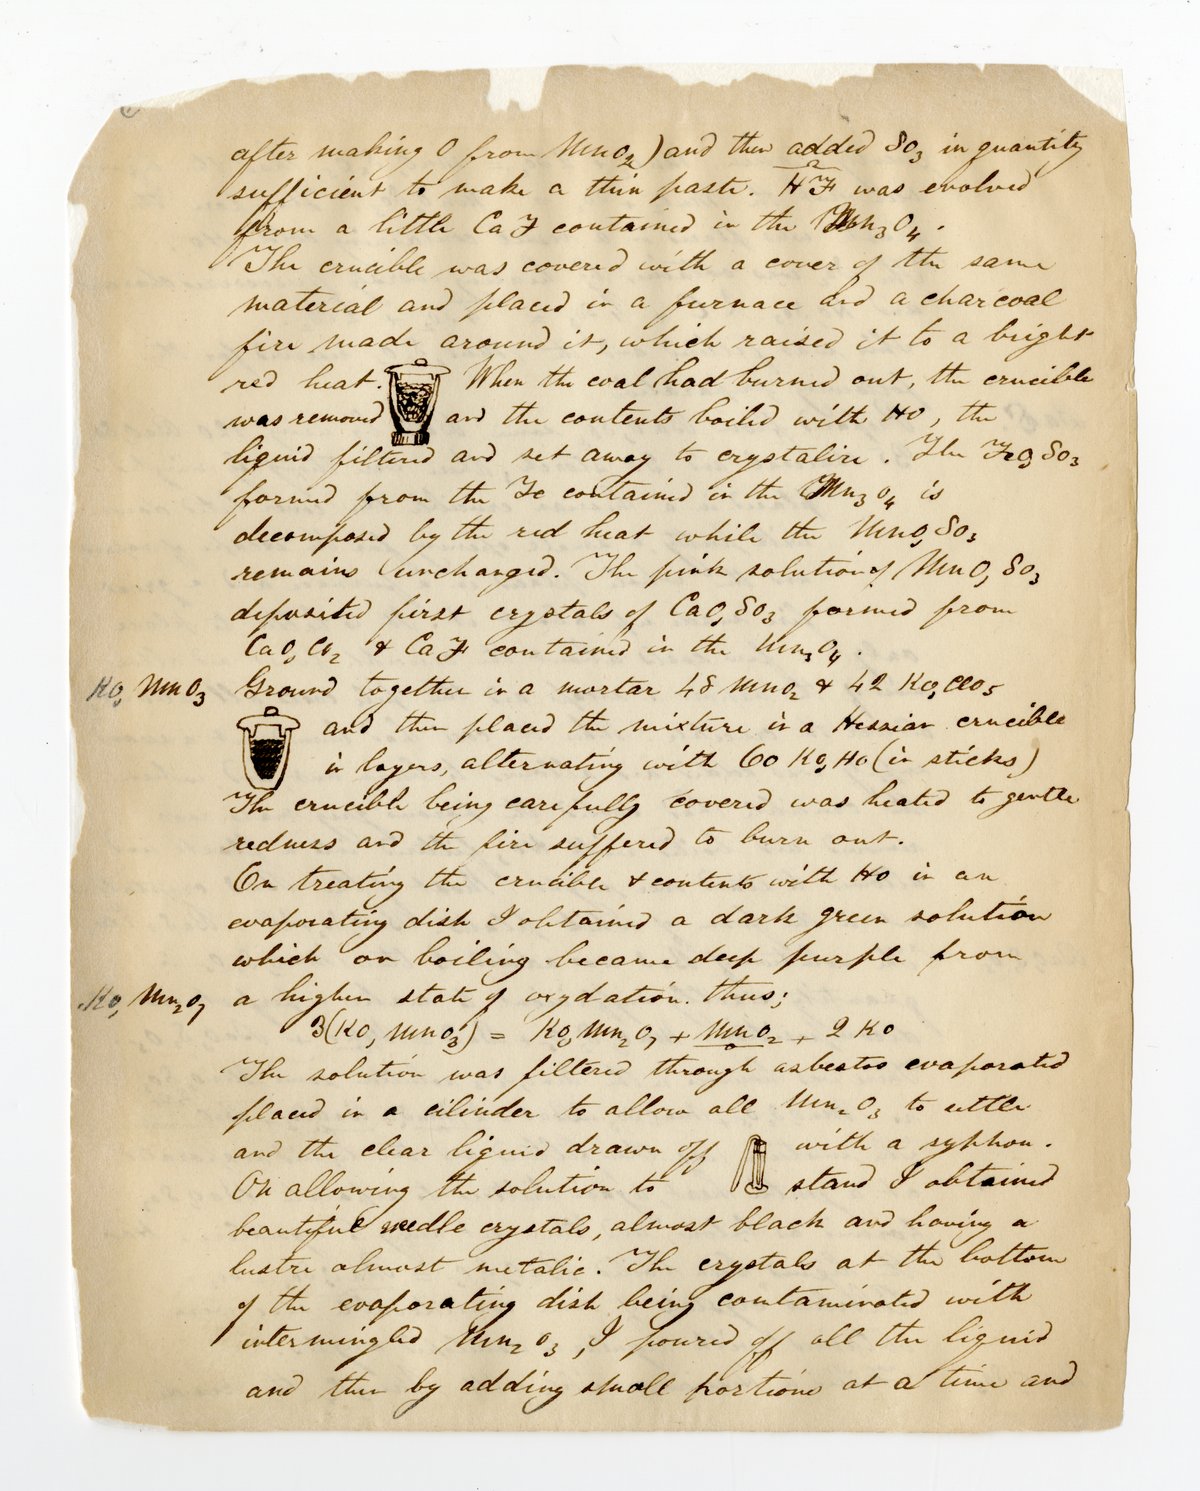 after making O from MnO2) and then added SO3 in quantity
sufficient to make a thin paste. HF was evolved
from a little CaF contained in the Mn3O4.
The crucible was covered with a cover of the same
material and placed in a furnace and a charcoal
fire made around it, which raised it to a bright
red heat. When the coal had burned out, the crucible
was removed and the contents boiled with HO, the
liquid filtered and set away to crystalize. The FeO,SO3
formed from the Fe contained in the Mn3O4 is
decomposed by the red heat while the MnO,SO3
remains unchanged. The pink solution of MnO,SO3
deposited first crystals of CaO,SO3 formed from
CaO,CO2 & CaF contained in the Mn3O4.
KO,MnO3 Ground together in a mortar 48 MnO2 & 42 KO,ClO5
and then placed the mixture in a Hessian crucible
in layers, alternating with 60 KO,HO (in sticks)
The crucible being carefully covered was heated to gentle
redness and the fire suffered to burn out.
On treating the crucible & contents with HO in an
evaporating dish I obtained a dark green solution
which on boiling became deep purple from
KO,Mn2O7 a higher state of oxydation. thus;
3(KO,MnO3) = KO,Mn2O7 + MnO2 + 2 KO
The solution was filtered through asbestos evaporated
placed in a cilinder to allow all Mn2O3 to settle
and the clear liquid drawn off with a syphon.
On allowing the solution to stand I obtained
beautiful needle crystals, almost black and having a
lustre almost metalic. The crystals at the bottom
of the evaporating dish being contaminated with
intermingled Mn2O3, I poured off all the liquid
and then by adding small portions at a time and